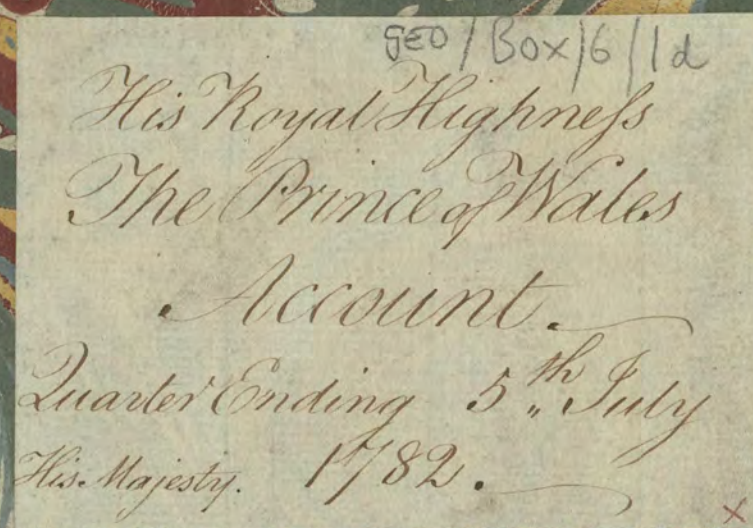 GEO/Box/6/1d
His Royal Highneſs
The Prince of Wales
Account.
Quarter Ending 5.th July
His Majesty. 1782.
x